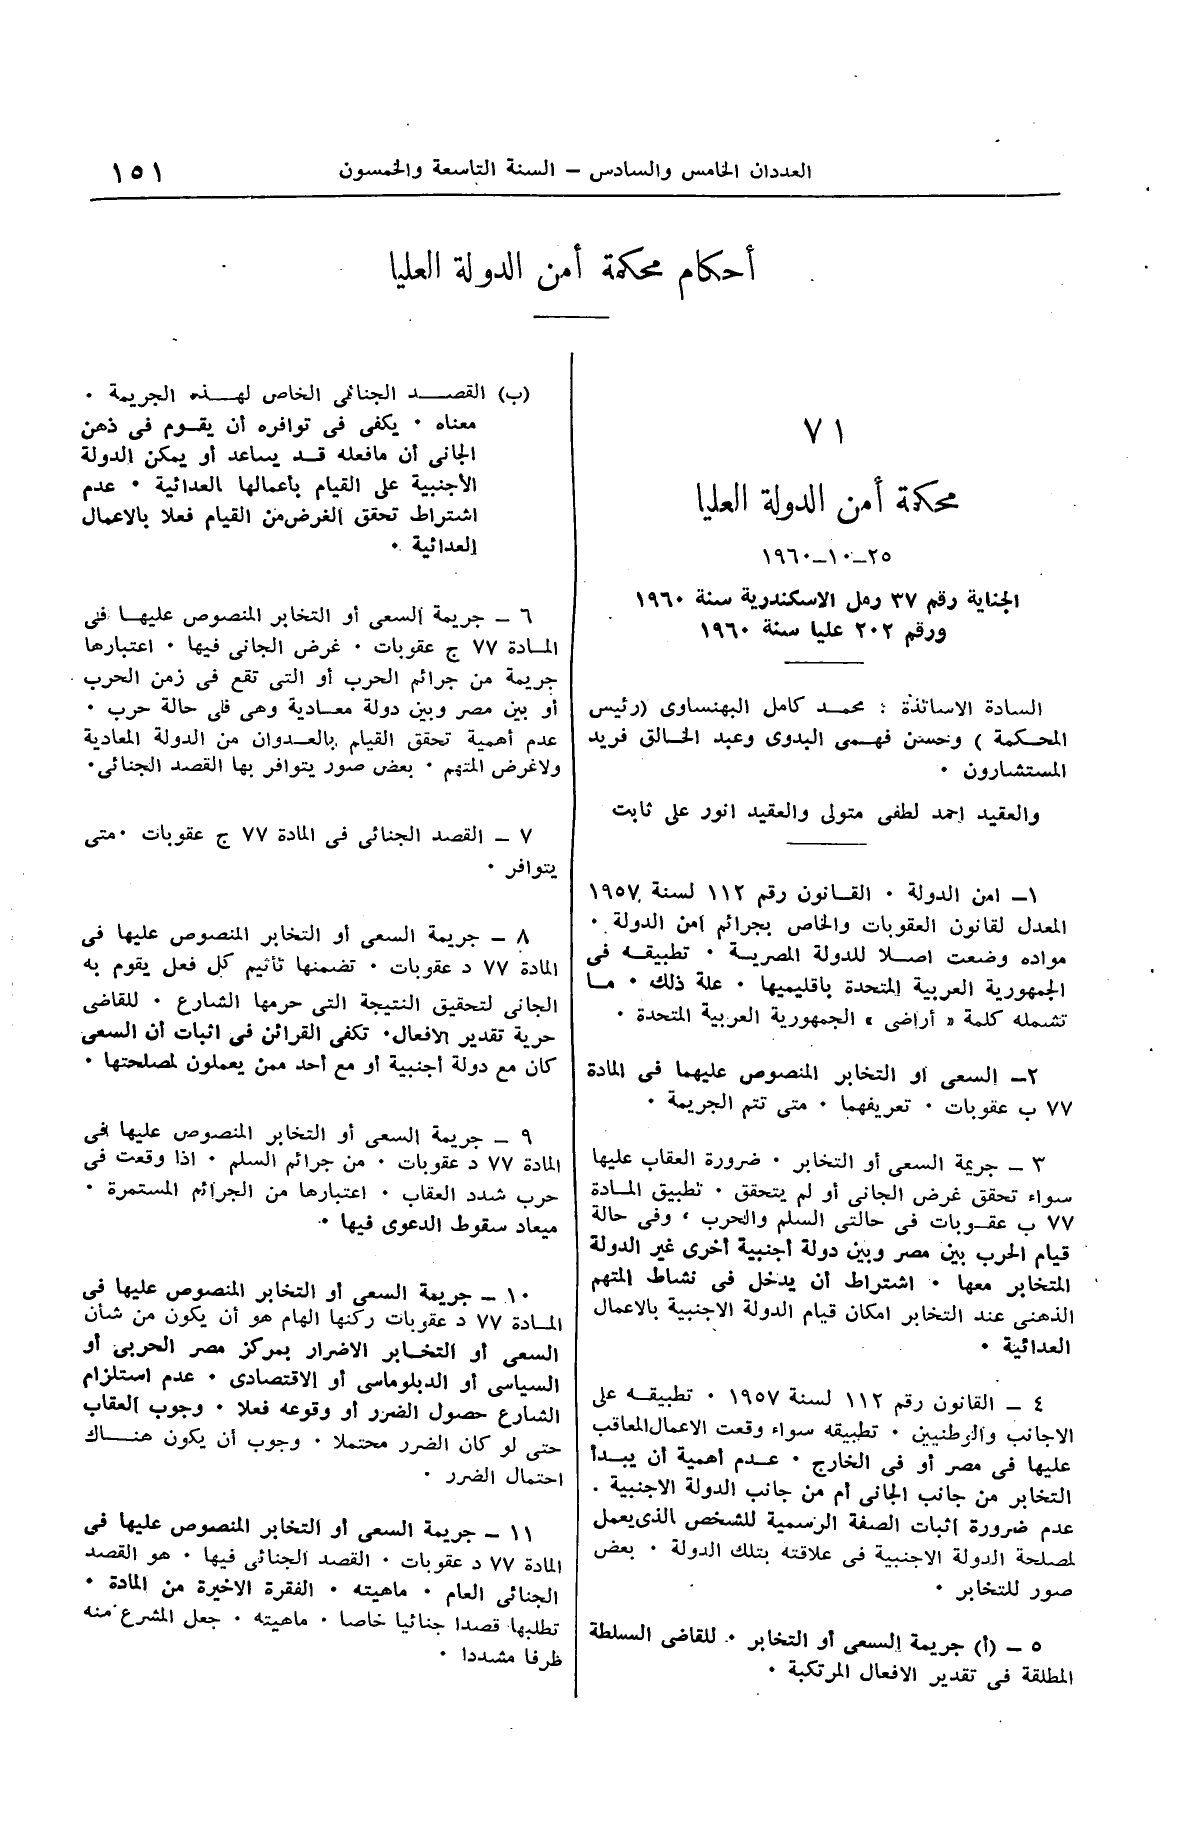 العددان الخامس والسادس – السنة التاسعة والخمسون
١٥١
أحكام محكمة أمن الدولة العليا
٧١
محكمة أمن الدولة العليا
٢٥–١٠–١٩٦٠
الجناية رقم ٣٧ رمل الاسكندرية سنة ١٩٦٠
ورقم ٢٠٢ عليا سنة ١٩٦٠
السادة الاساتذة : محمد كامل البهنساوى (رئيس
المحكمة ) وحسن فهمى البدوى وعبد الخالق فريد
المستشارون ٠
والعقيد احمد لطفى متولى والعقيد انور على ثابت
١– امن الدولة ٠ القانون رقم ١١٢ لسنة ١٩٥٧
المعدل لقانون العقوبات والخاص بجرائم امن الدولة ٠
مواده وضعت اصلا للدولة المصرية ٠ تطبيقه فى
الجمهورية العربية المتحدة باقليميها ٠ علة ذلك ٠ ما
تشمله كلمة « أراضى » الجمهورية العربية المتحدة ٠
٢– السعى او التخابر المنصوص عليهما فى المادة
٧٧ ب عقوبات ٠ تعريفهما ٠ متى تتم الجريمة ٠
٣ – جريمة السعى أو التخابر ٠ ضرورة العقاب عليها
سواء تحقق غرض الجانى أو لم يتحقق ٠ تطبيق المادة
٧٧ ب عقوبات فى حالتى السلم والحرب ، وفى حالة
قيام الحرب بين مصر وبين دولة أجنبية أخرى غير الدولة
المتخابر معها ٠ اشتراط أن يدخل فى نشاط المتهم
الذهنى عند التخابر امكان قيام الدولة الاجنبية بالاعمال
العدائية ٠
٤ – القانون رقم ١١٢ لسنة ١٩٥٧ ٠ تطبيقه على
الاجانب والوطنيين ٠ تطبيقه سواء وقعت الاعمال المعاقب
عليها فى مصر أو فى الخارج ٠ عدم أهمية أن يبدأ
التخابر من جانب الجانى أم من جانب الدولة الاجنبية .
عدم ضرورة اثبات الصفة الرسمية للشخص الذى يعمل
لمصلحة الدولة الاجنبية فى علاقته بتلك الدولة ٠ بعض
صور للتخابر ٠
٥ – (أ) جريمة السعى أو التخابر ٠ للقاضى السلطة
المطلقة فى تقدير الافعال المرتكبة ٠
(ب) القصد الجنائى الخاص لهذه الجريمة ٠
معناه ٠ يكفى فى توافره أن يقوم فى ذهن
الجانى أن مافعله قد يساعد أو يمكن الدولة
الأجنبية على القيام بأعمالها العدائية ٠ عدم
اشتراط تحقق الغرض من القيام فعلا بالاعمال
العدائية ٠
٦ – جريمة السعى أو التخابر المنصوص عليها فى
المادة ٧٧ ج عقوبات ٠ غرض الجانى فيها ٠ اعتبارها
جريمة من جرائم الحرب أو التى تقع فى زمن الحرب
أو بين مصر وبين دولة معادية وهى فى حالة حرب ٠
عدم أهمية تحقق القيام بالعدوان من الدولة المعادية
ولاغرض المتهم ٠ بعض صور يتوافر بها القصد الجنائى٠
٧ – القصد الجنائى فى المادة ٧٧ ج عقوبات ٠متى
يتوافر ٠
٨ – جريمة السعى أو التخابر المنصوص عليها فى
المادة ٧٧ د عقوبات ٠ تضمنها تأثيم كل فعل يقوم به
الجانى لتحقيق النتيجة التى حرمها الشارع ٠ للقاضى
حرية تقدير الافعال٠ تكفى القرائن فى اثبات أن السعى
كان مع دولة أجنبية أو مع أحد ممن يعملون لمصلحتها ٠
٩ – جريمة السعى أو التخابر المنصوص عليها فى
المادة ٧٧ د عقوبات ٠ من جرائم السلم ٠ اذا وقعت فى
حرب شدد العقاب ٠ اعتبارها من الجرائم المستمرة ٠
ميعاد سقوط الدعوى فيها ٠
١٠ – جريمة السعى أو التخابر المنصوص عليها فى
المادة ٧٧ د عقوبات ركنها الهام هو أن يكون من شأن
السعى أو التخابر الاضرار بمركز مصر الحربى أو
السياسى أو الدبلوماسى أو الاقتصادى ٠ عدم استلزام
الشارع حصول الضرر أو وقوعه فعلا ٠ وجوب العقاب
حتى لو كان الضرر محتملا ٠ وجوب أن يكون هناك
احتمال الضرر ٠
١١ – جريمة السعى أو التخابر المنصوص عليها فى
المادة ٧٧ د عقوبات ٠ القصد الجنائى فيها ٠ هو القصد
الجنائى العام ٠ ماهيته ٠ الفقرة الاخيرة من المادة ٠
تطلبها قصدا جنائيا خاصا ٠ ماهيته ٠ جعل المشرع منه
ظرفا مشددا ٠